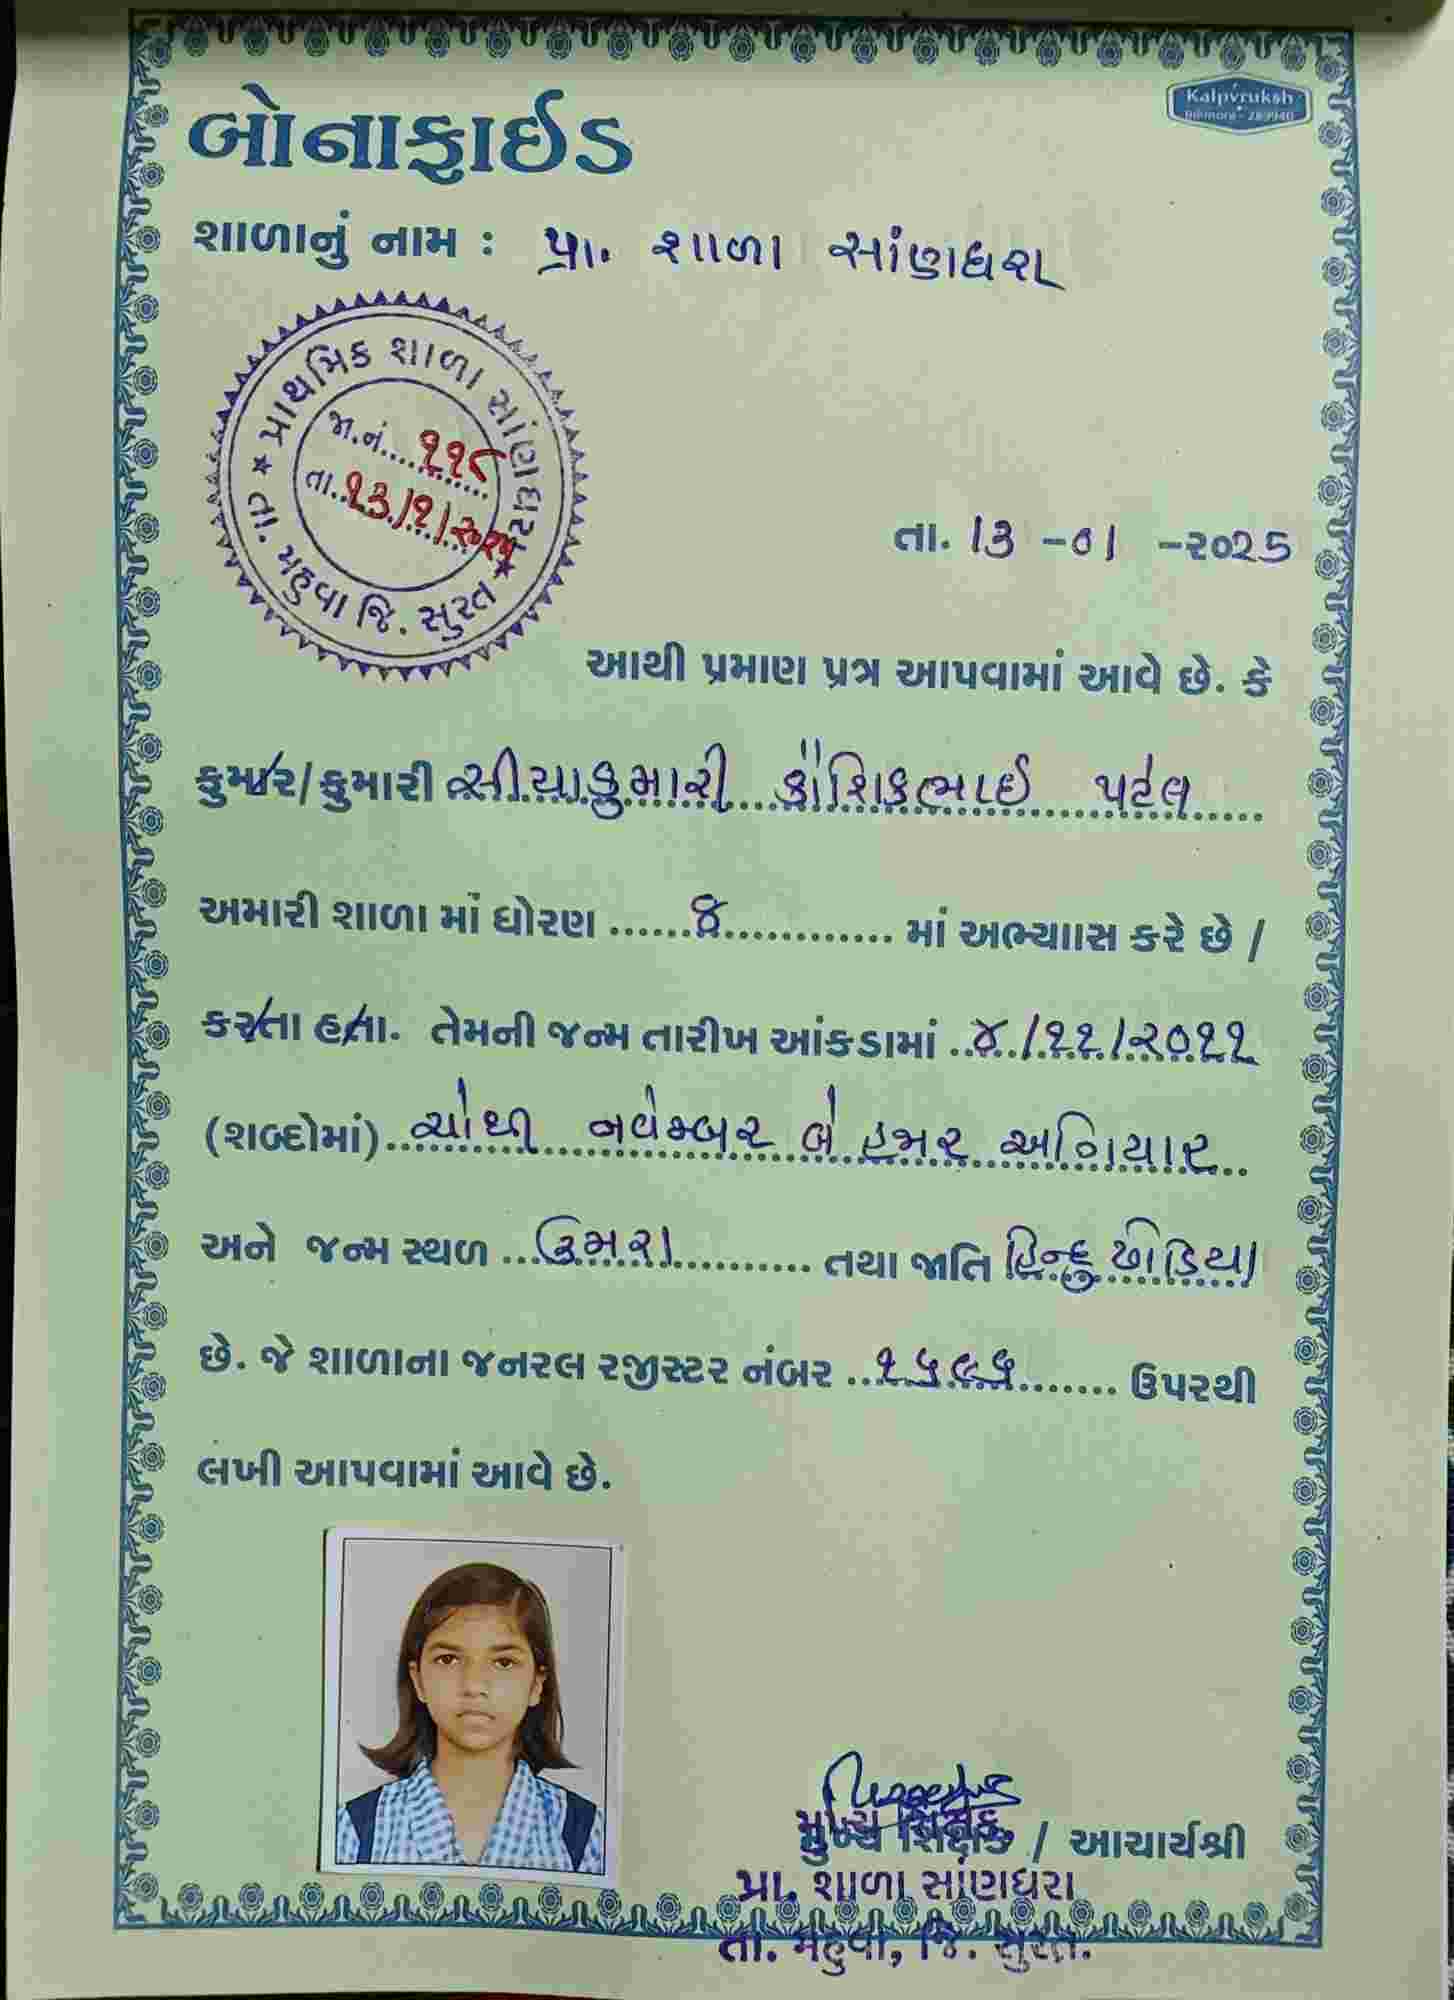 Kalpvruksh
બોનાફાઈડ
શાળાનું નામ : પ્રા. શાળા સાંણધરા
પ્રાથમિક શાળા સાંણધરા
તા. મહુવા જિ. સુરત
જા.નં....૧૧૮
તા..૧૩/૧/૨૦૨૫
તા. 13 -01 -૨૦25
આથી પ્રમાણ પત્ર આપવામાં આવે છે. કે
કુમાર/કુમારી સીયાકુમારી કૌશિકભાઈ પટેલ
અમારી શાળા માં ધોરણ ......૪............ માં અભ્યાસ કરે છે /
કરતા હતા. તેમની જન્મ તારીખ આંકડામાં ..૪./૧૧/૨૦૧૧
(શબ્દોમાં)..ચોથી નવેમ્બર બે હજાર અગિયાર..
અને જન્મ સ્થળ ...ઉમરા.......... તથા જાતિ હિન્દુ ધોડિયા
છે. જે શાળાના જનરલ રજીસ્ટર નંબર ..૧૫૯૫....... ઉપરથી
લખી આપવામાં આવે છે.
મુખ્ય શિક્ષક / આચાર્યશ્રી
મુખ્ય શિક્ષક
પ્રા. શાળા સાંણધરા
તા. મહુવા, જિ. સુરત.